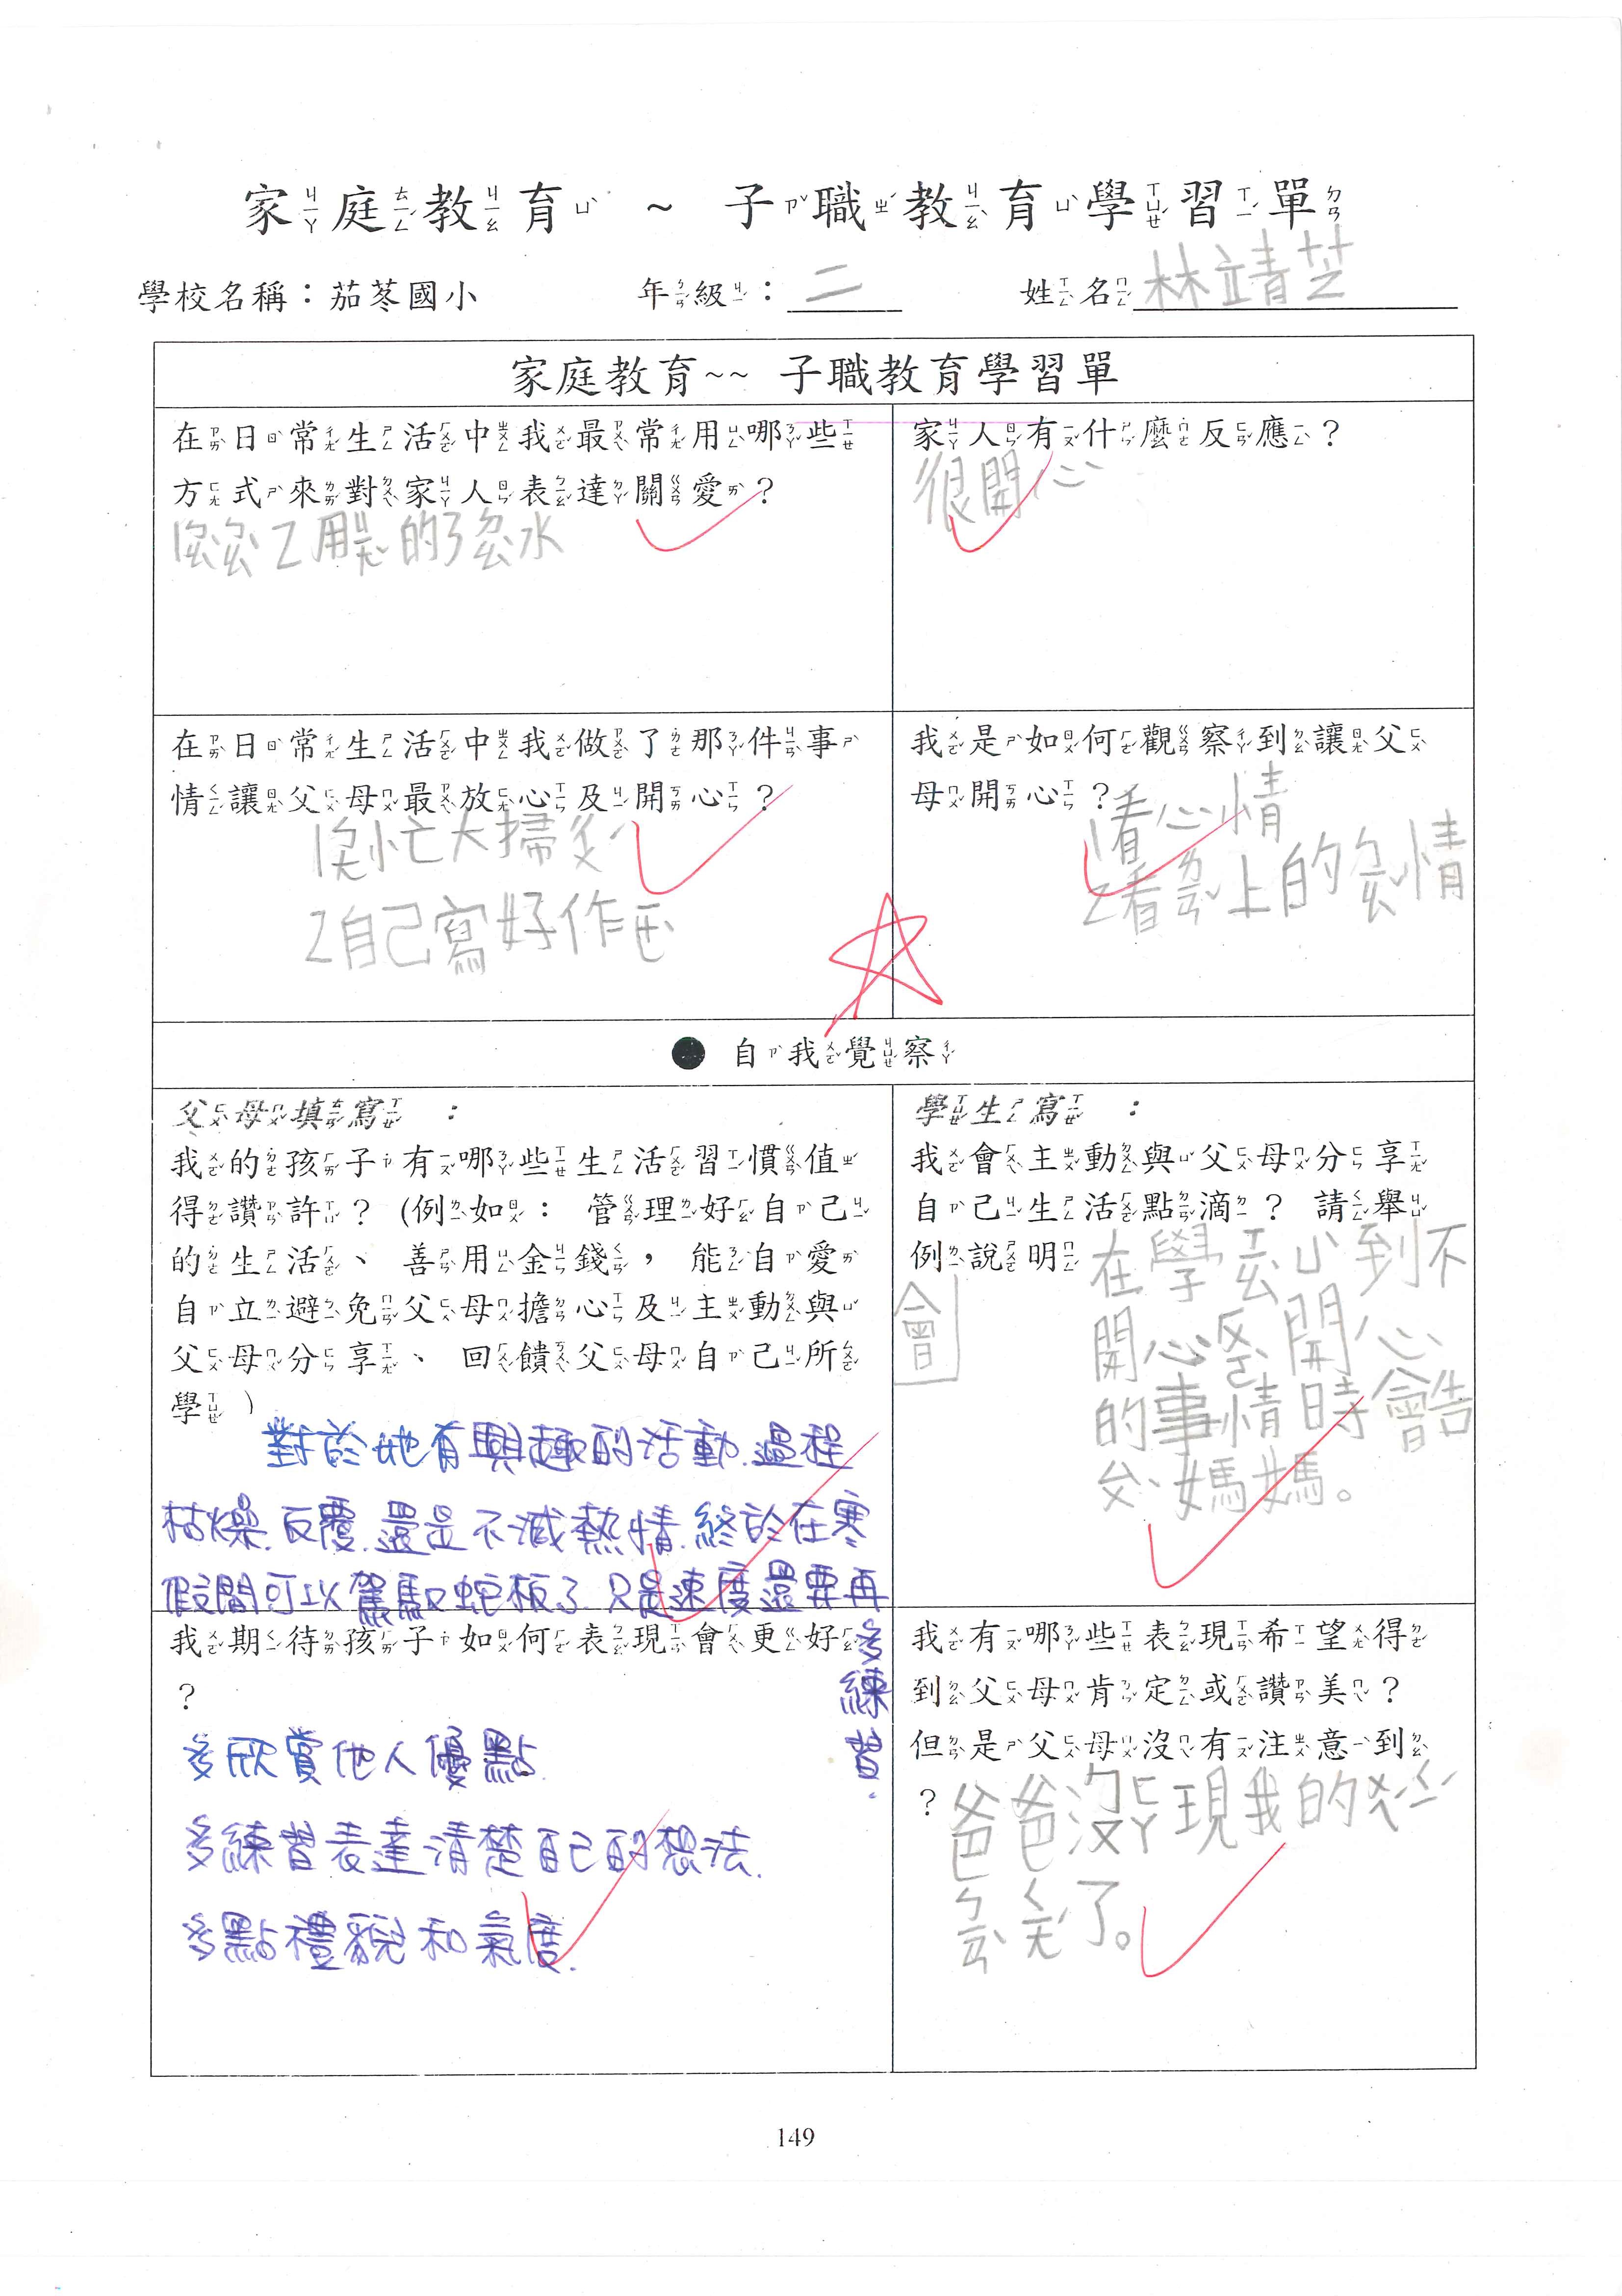 家庭教育 ~ 子職教育學習單
學校名稱：茄苳國小 年級：二 姓名 林靖芝
家庭教育~~ 子職教育學習單
在日常生活中我最常用哪些
方式來對家人表達關愛？
家人有什麼反應？
很開心
在日常生活中我做了那件事
情讓父母最放心及開心？
2自己寫好作
我是如何觀察到讓父
母開心？
1看心情
2看ㄌㄧㄢˇ上的ㄅㄧㄠˇ情
●自我覺察
父母填寫：
我的孩子有哪些生活習慣值
得讚許？(例如：管理好自己
的生活、善用金錢，能自愛
自立避免父母擔心及主動與
父母分享、回饋父母自己所
學)
對於她有興趣的活動.過程
枯燥.反覆.還是不減熱情.終於在寒
假間可以駕馭蛇板了.只是速度還要再
多練習.
學生寫：
我會主動與父母分享
自己生活點滴？請舉
例說明
會
在學ㄒㄧㄠˋ到不
開心 開心
的事情時會告
ㄙㄨˋ媽媽。
我期待孩子如何表現會更好
？
多欣賞他人優點.
多練習表達清楚自己的想法.
多點禮貌和氣度.
我有哪些表現希望得
到父母肯定或讚美？
但是父母沒有注意到
？
爸爸沒ㄈㄚ現我的
了。
149